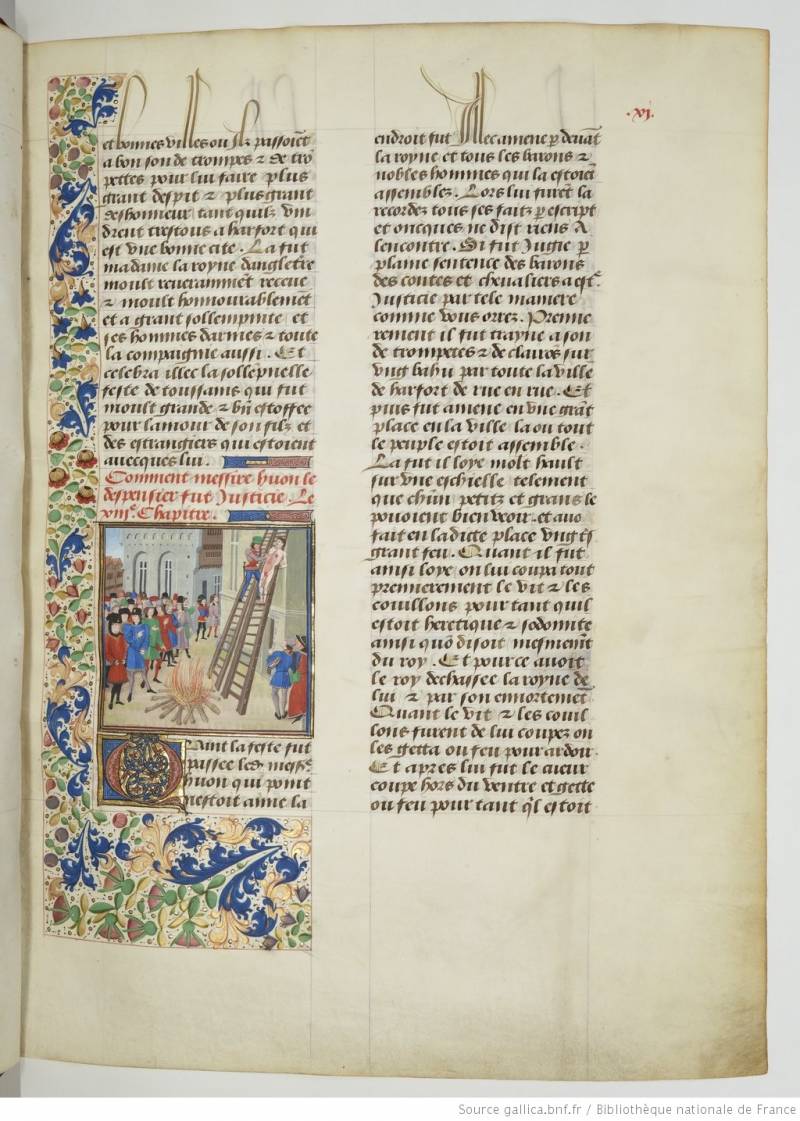 .xi.
et bonnes villes ou ilz passoiēt
a bon son de trompes ⁊ de trō
pettes pour lui faire plus
grant despit ⁊ plus grant
deshonneur tant quilz vin
drent trestous a harfort qui
est vne bonne cite. La fut
madame la royne dangletr̄e
moult reuerammēt receue
⁊ moult honnourablemēt
et a grant sollempnite et
ses hommes darmes ⁊ toute
la compaignie aussi. Et
celebra illec la sollēpnelle
feste de toussains qui fut
moult grande ⁊ bn̄ estoffee
pour lamour de son filz et
des estrangiers qui estoient
auecques lui.
Comment messire huon le
despensier fut Justicie. Le
viiiᵉ. Chapitre.
Quant la feste fut
passee led̄ messᵉ
huon qui point
nestoit aime la
endroit fut Illec amene ꝑ deuāt
la royne et tous les barons ⁊
nobles hommes qui la estoiēt
assemblez. Lors lui furēt la
recordez tous ses faitz ꝑ escript
et oncques ne dist riens A
lencontre. Si fut Jugie ꝑ
plaine sentence des barons
des contes et cheualiers a estᵉ
Justicie par tele maniere
comme vous orrez. Premie
rement il fut trayne a son
de trompetes ⁊ de clairōs sur
vng bahu par toute la ville
de harfort de rue en rue. Et
puis fut amene en vne grāt
place en la ville la ou tout
le peuple estoit assemble.
La fut il loye molt hault
sur vne eschielle telement
que chūn petitz et grans le
pouoient bien veoir. et auo
fait en la dicte place vng tsͥ
grant feu. Quant il fut
ainsi loye on lui coupa tout
premierement le vit ⁊ les
couillons pour tant quil
estoit heretique ⁊ sodomite
ainsi quō disoit mesmemt̄
du roy. Et pour ce auoit
le roy dechassee la royne de
lui ⁊ par son ennortemēt
Quant le vit ⁊ les couil
lons furent de lui coupez on
les getta ou feu pour ardoir.
Et apres lui fut le cueur
coupe hors du ventre et gette
ou feu pour tant q̄l estoit
Source gallica.bnf.fr / Bibliothèque nationale de France